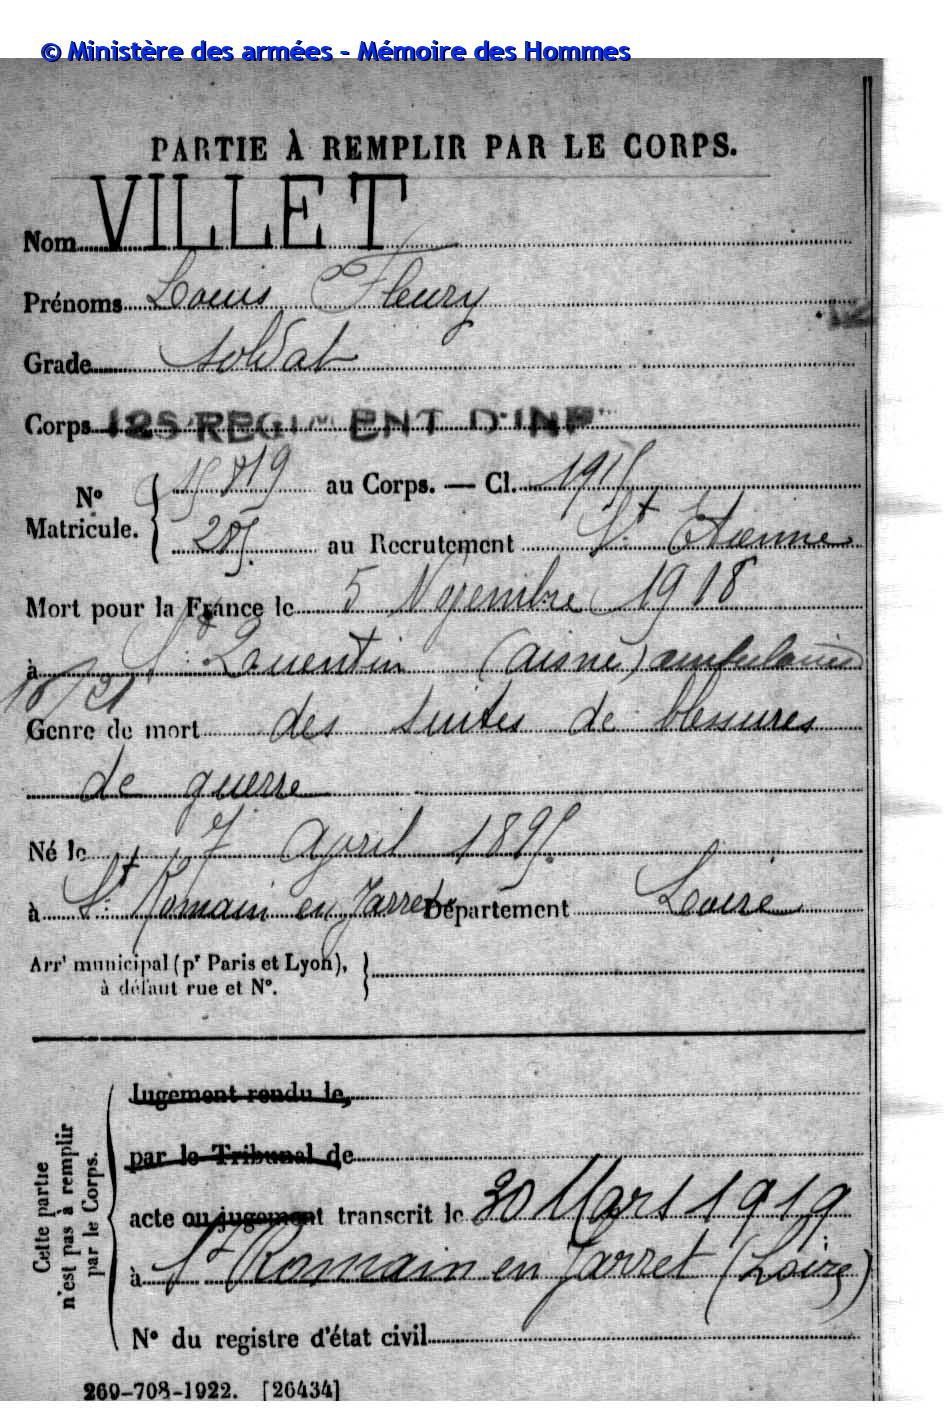 © Ministère des armées - Mémoire des Hommes
PARTIE À REMPLIR PAR LE CORPS.
Nom VILLET
Prénoms Louis Fleury
Grade soldat
Corps 125 REGIMENT D'INF
N° Matricule. { 15819 au Corps. — Cl. 1915
285. au Recrutement St Etienne
Mort pour la France le 5 Novembre 1918
à St Quentin (aisne) ambulance
16/21
Genre de mort des suites de blessures
de guerre
Né le 7 April 1895.
à St Romain en Jarret Département Loire
Arrt municipal (pr Paris et Lyon),
à défaut rue et N°.
Cette partie n'est pas à remplir par le Corps.
Jugement rendu le,
par le Tribunal de
acte ou jugement transcrit le 30 Mars 1919
à St Romain en Jarret (Loire)
N° du registre d'état civil
269-708-1922. [26434]